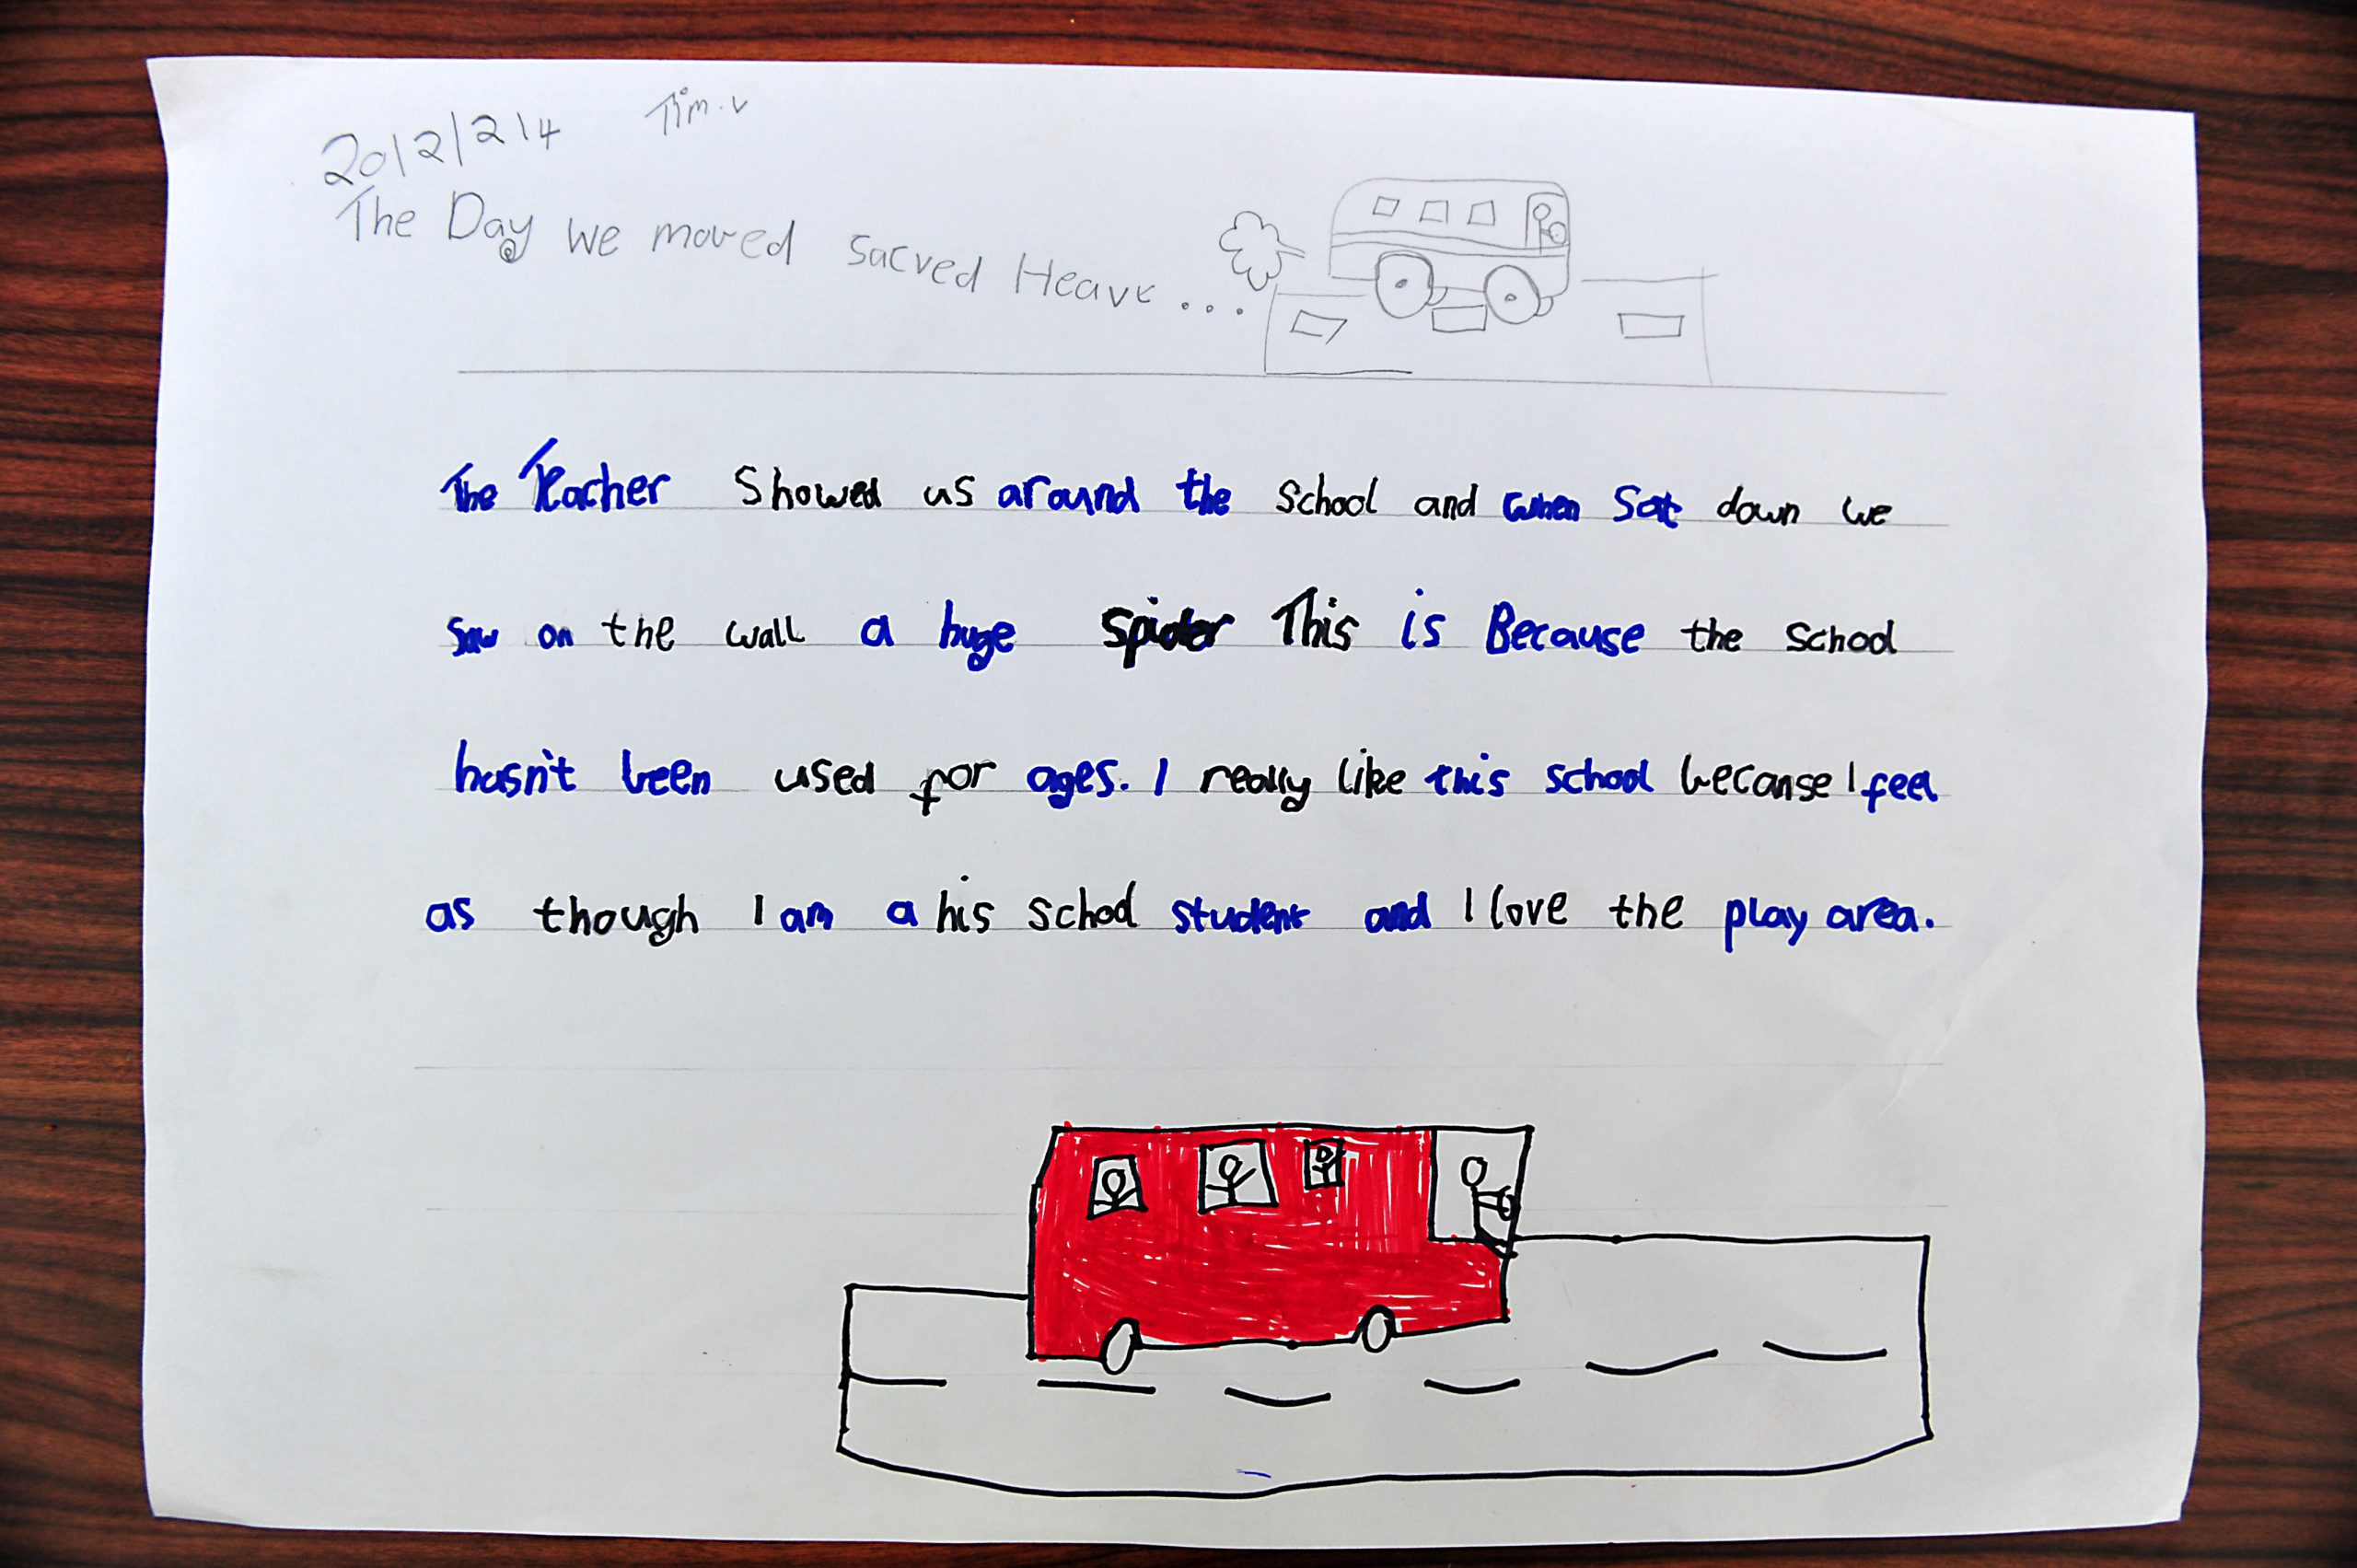 20/2/214 Tim.v
The Day we moved sacred Heave...
The Teacher Showed us around the school and when Sat down we
saw on the wall a huge spider This is Because the school
hasn't been used for ages. I really like this school because I feel
as though I am a his school student and I love the play area.